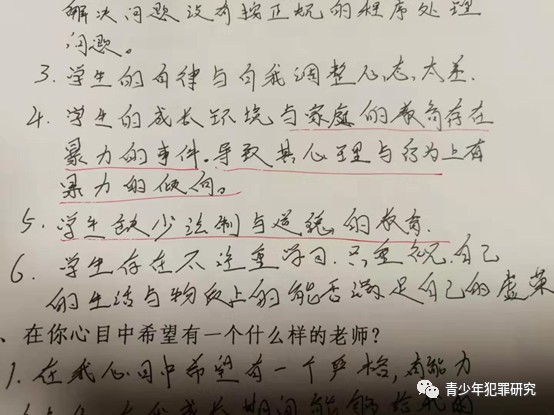 解决问题没有按正规的程序处理
问题。
3. 学生的自律与自我调整心态,太差.
4. 学生的成长环境与家庭的教育存在
暴力的事件。导致其心理与行为上有
暴力的倾向。
5. 学生缺少法制与道德的教育.
6. 学生存在不注重学习.只重视.自己
的生活与物质上的能否满足自己的虚荣
、在你心目中希望有一个什么样的老师?
1. 在我心目中希望有一个严格,有能力
成长期间能够给我们
青少年犯罪研究